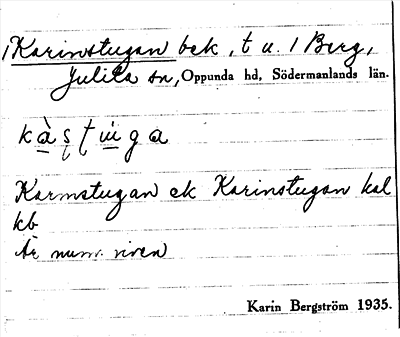 /Karinstugan bek, t u. 1 Berg,
Julita sn, Oppunda hd, Södermanlands län.
kàṣtùga
Karmstugan ek Karinstugan kal
kb
Är num. riven
Karin Bergström 1935.